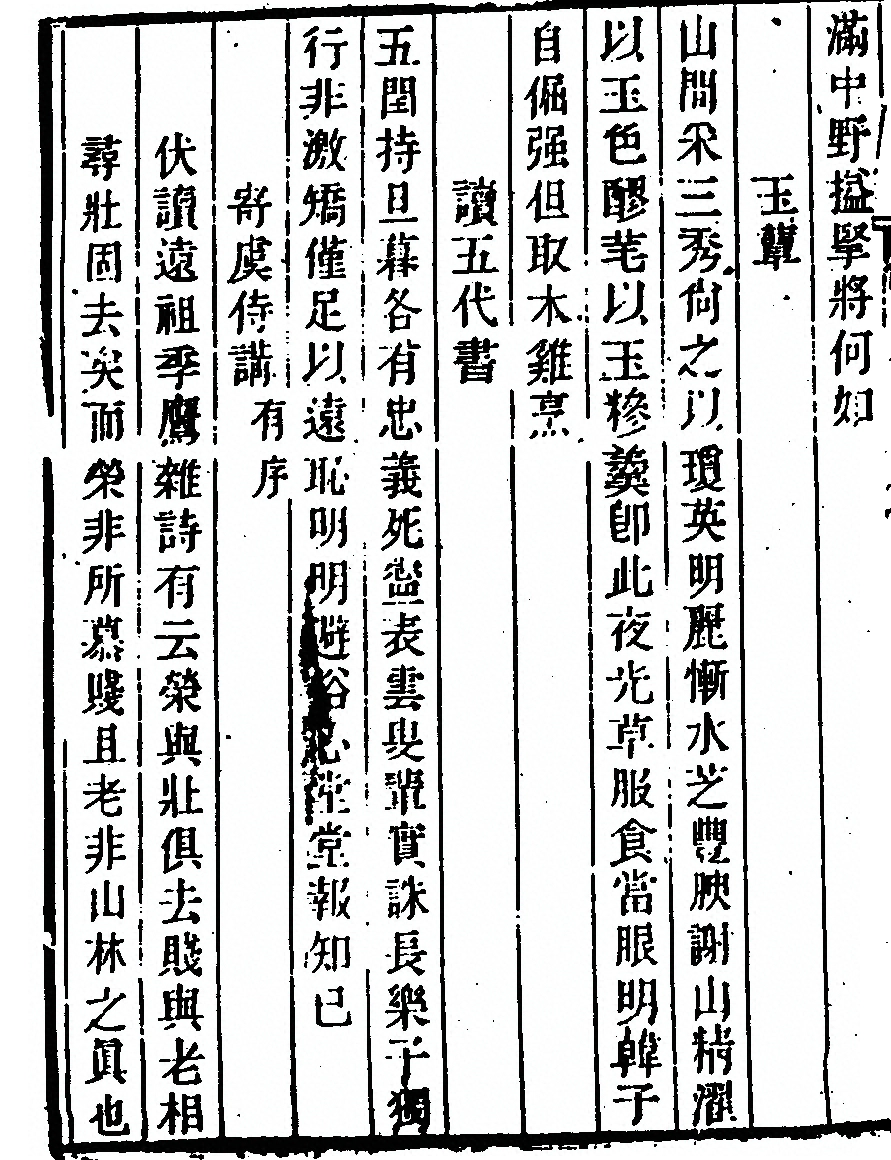 滿中野搤掔將何如
玉蕈
山間采三秀尙之以瓊英明麗慚水芝豐腴謝山精濯
以玉色醪芼以玉糝羹卽此夜光草服食當眼明韓子
自倔强但取木雞烹
讀五代書
五閏持旦暮各有忠義死表雲叟輩實誅長樂子獨
行非激矯僅足以遠恥明明避俗心堂堂報知已
寄虞侍講有序
伏讀遠祖季鷹雜詩有云榮與壯俱去賤與老相
尋壯固去矣而榮非所慕賤且老非山林之眞也